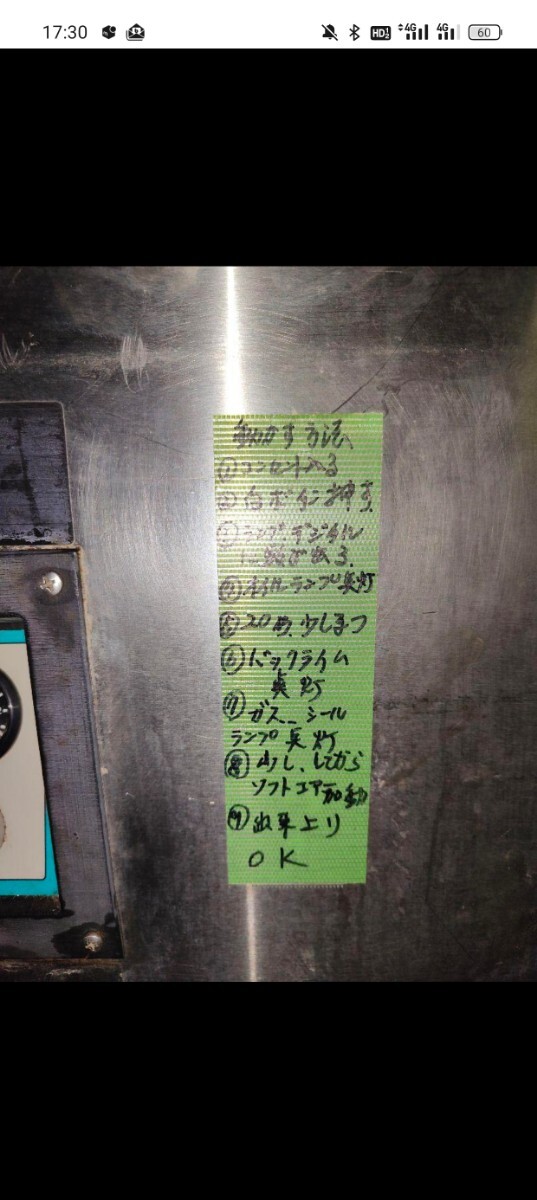 17:30
HD1 4G 4G 60
動かす方法
①コンセント入る
②白ボタン押す
③ランプ、デジタル
に数が出る
④オイルランプ点灯
⑤20め、少しまつ
⑥バックライム
点灯
⑦ガス シール
ランプ点灯
⑧少し、してから
ソフトエアー加動
⑨出来上り
OK